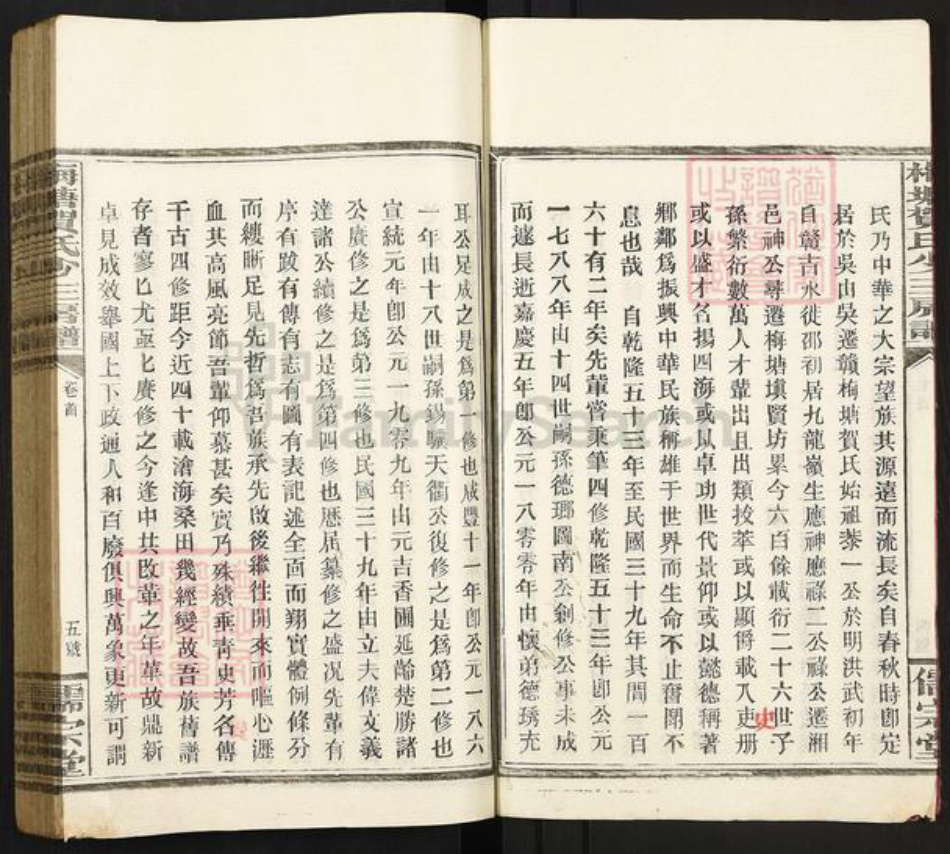 氏乃中華之大宗望族其源遠而流長矣自春秋時卽定
居於吳由吳遷贛梅塘賀氏始祖黎一公於明洪武初年
自贛吉水徙邵初居九龍嶺生應神應祿二公祿公遷湘
邑神公尋遷梅塘塤賢坊累今六百餘載衍二十六世子
孫繁衍數萬人才輩出且出類拔萃或以顯爵載入史册
或以盛才名揚四海或以卓功世代景仰或以懿德稱著
鄉鄰爲振興中華民族稱雄于世界而生命不止奮鬥不
息也哉 自乾隆五十三年至民國三十九年其間一百
六十有二年矣先輩嘗秉筆四修乾隆五十三年卽公元
一七八八年由十四世嗣孫德瑯圖南公創修公事未成
而遽長逝嘉慶五年卽公元一八零零年由懷弟德琇充
耳公足成之是爲第一修也咸豐十一年卽公元一八六
一年由十八世嗣孫錫驥天衢公復修之是爲第二修也
宣統元年卽公元一九零九年由元吉香圃延齡楚勝諸
公賡修之是爲第三修也民國三十九年由立夫偉文義
達諸公續修之是爲第四修也歷屆纂修之盛况先輩有
序有跋有傳有志有圖有表記述全面而翔實體例條分
而縷晰足見先哲爲吾族承先啟後繼往開來而嘔心瀝
血其高風亮節吾輩仰慕甚矣實乃殊績垂靑史芳名傳
千古四修距今近四十載滄海桑田幾經變故吾族舊譜
存者寥匕尤亟匕賡修之今逢中共改革之年革故鼎新
卓見成效舉國上下政通人和百廢俱興萬象更新可謂
梅塘賀氏少三房譜
卷首
五號
儒宗堂
FamilySearch